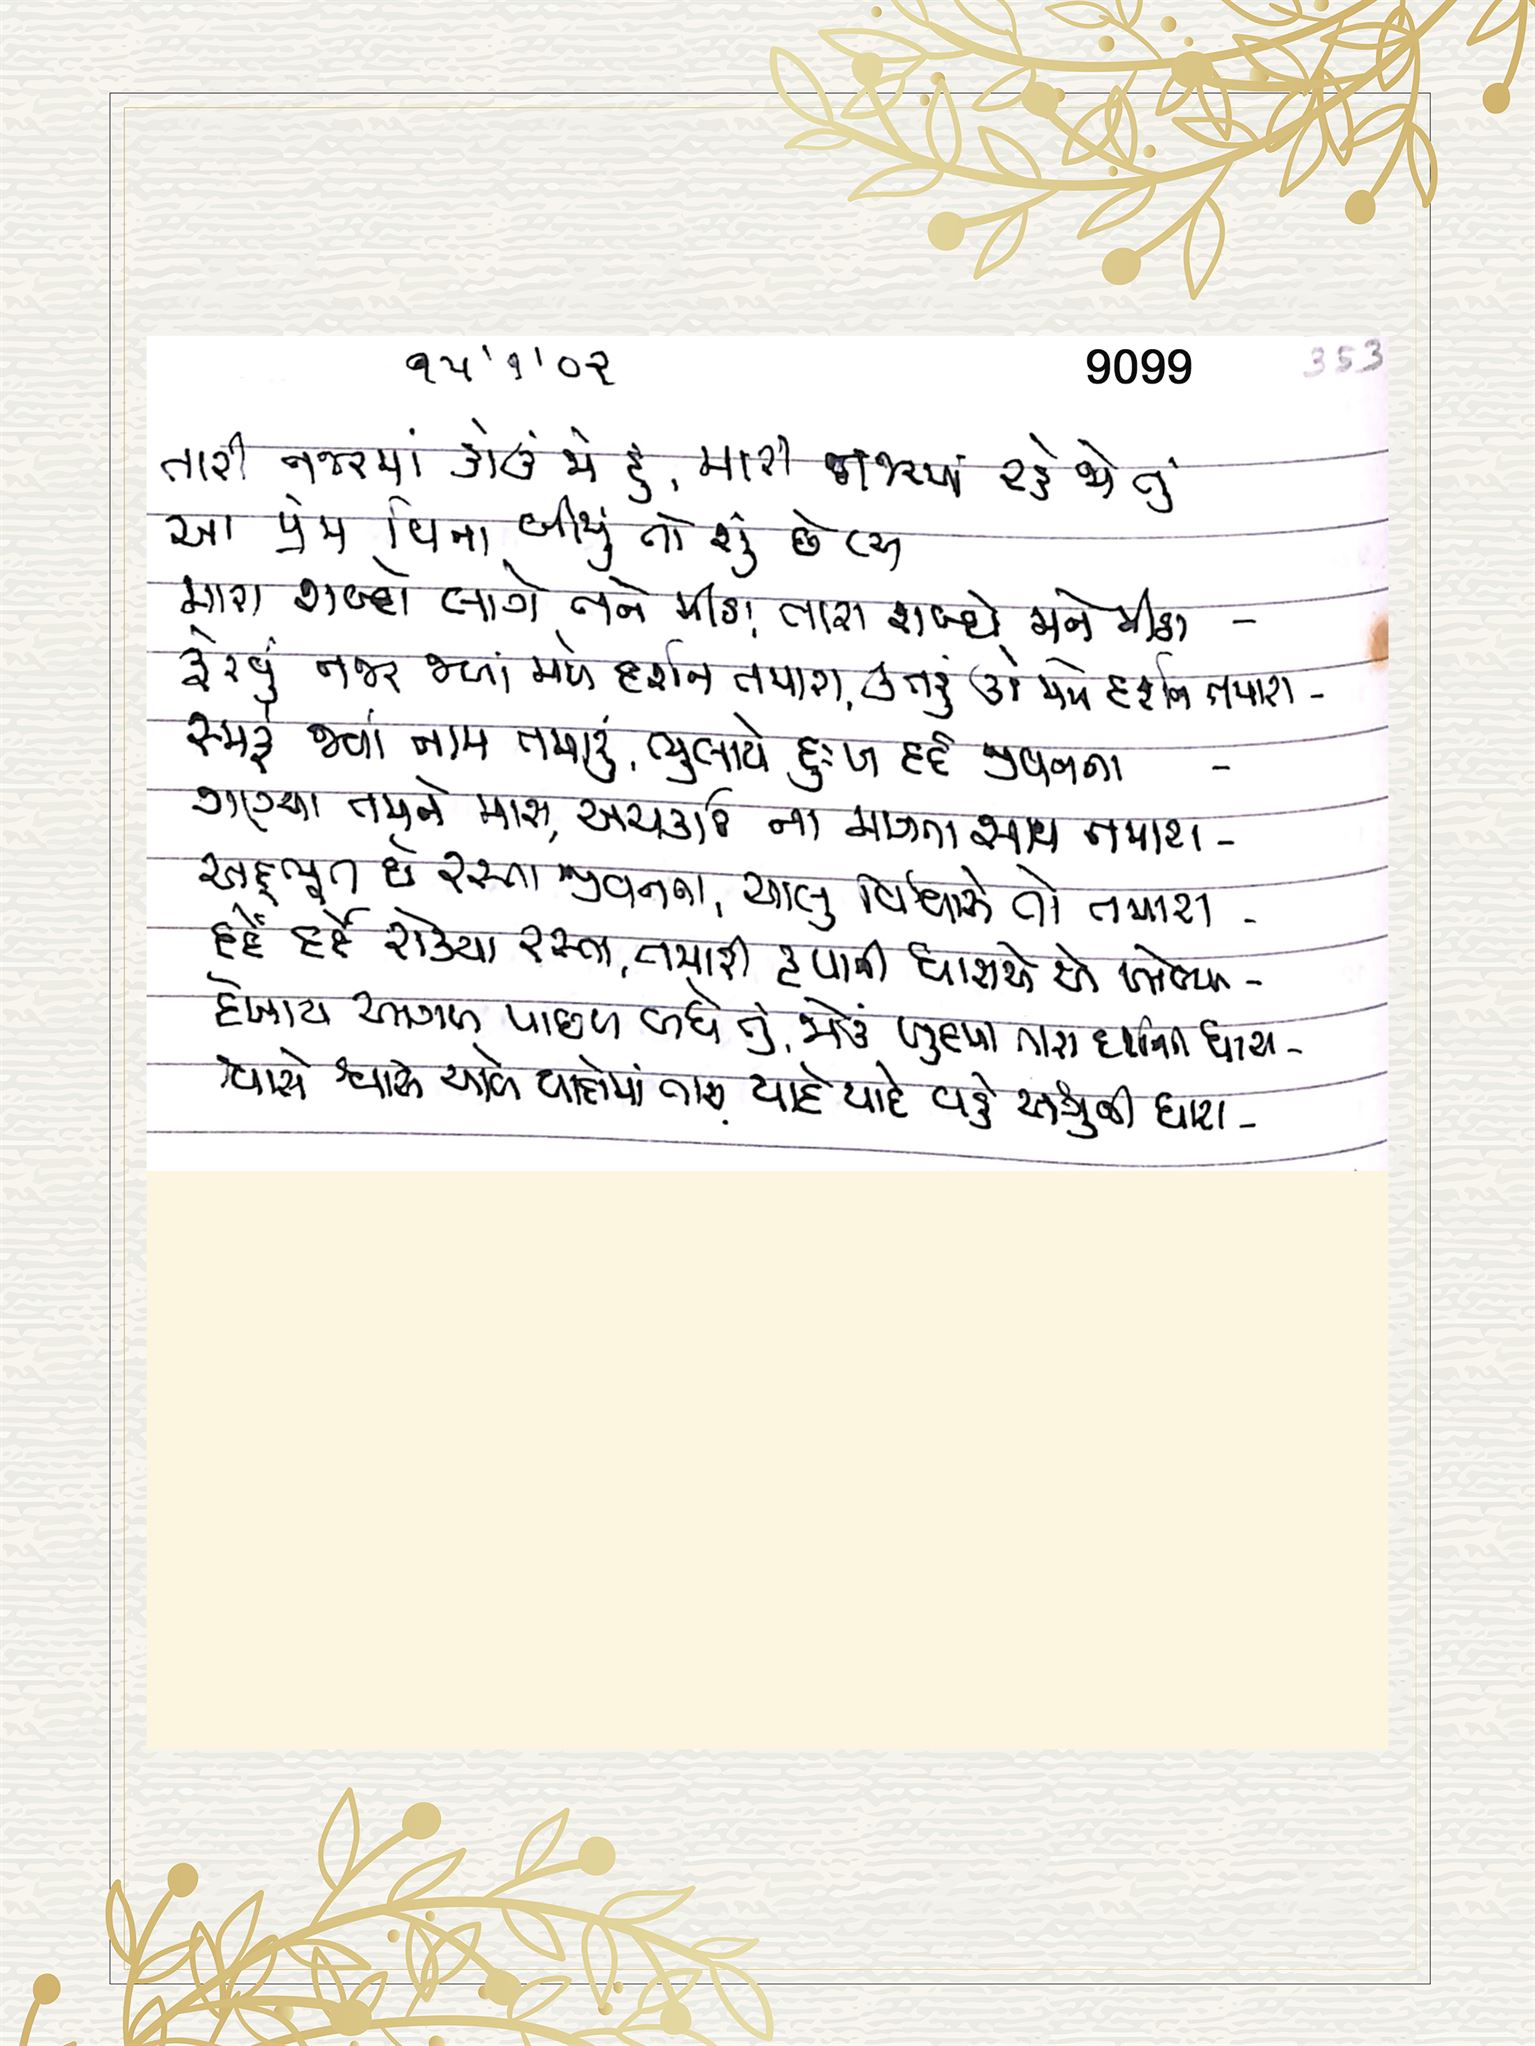 ૧૫'૧'૦૨ 9099 353
તારી નજરમાં હોઉં જો હું, મારી નજરમાં રહે જો તું
આ પ્રેમ વિના બીજું તો શું છે
મારા શબ્દો લાગે તને મીઠા, તારા શબ્દો મને મીઠા -
ફેરવું નજર જ્યાં મળે દર્શન તમારા, મળે દર્શન તમારા -
સ્મરું જ્યાં નામ તમારું, ભુલાયે દુઃખ દર્દ જીવનના -
ગણ્યા તમને મારા, ના માગતા સાથ તમારા -
અદ્દભૂત છે રસ્તા જીવનના, ચાલુ વિશ્વાસે તો તમારા -
દર્દે દર્દે રોક્યા રસ્તા, તમારી કૃપાની ધારાએ એ ખોલ્યા -
દેખાય આગળ પાછળ બધે તું, જોઉં હૃદયમાં તારા દર્શનની ધારા -
શ્વાસે શ્વાસે યાદોમાં તારા, યાદે યાદે વહે અશ્રુની ધારા -